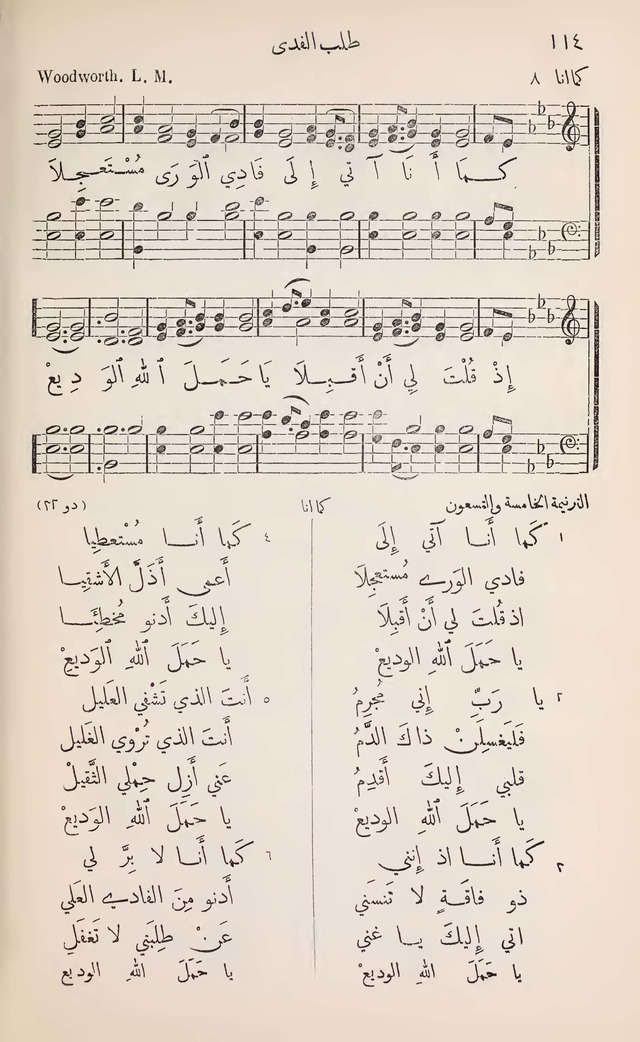 ١١٤
طلب الفدى
كما انا ٨
Woodworth. L. M.
كَـمَا أَ نَا آ تِي إِ لَى فَادِي ٱلْوَ رَى مُسْتَعْجِلَا
إِذْ قُلْتَ لِي أَنْ أَقْبِلَا يَا حَمَلَ ٱللهِ ٱلْوَ دِ يعْ
الترنيمة الخامسة والتسعون
كما انا
(دو ٢٢)
١ كَما أَنا آتي إِلَى
فادي الوَرے مُستعجِلَا
اذ قُلتَ لي أَنْ أَقبِلَا
يا حَمَلَ اللهِ الوديعْ
٢ يا رَبِّ إِني مُجرِمُ
فَليَغسِلَنْ ذاكَ الدَّمُ
قلبي إِليكَ أَقدِمُ
يا حَمَلَ اللهِ الوديعْ
٣ كَما أَنا اذ إِنني
ذو فاقَةٍ لا تَنسَني
اتي إِليكَ يا غني
يا حَمَلَ اللهِ الوديعْ
٤ كَما أَنا مُستَعطِيا
أَعمى أَذَلَّ الأَشقِيا
إِليكَ أَدنو مُخطِئا
يا حَمَلَ ٱللهِ ٱلوَديعْ
٥ أَنتَ الذي تَشْفِي العَليل
أَنتَ الذي تُرْوي الغَليل
عَني أَزِل حِمْلي الثَّقيلْ
يا حَمَلَ ٱللهِ الوَديعْ
٦ كَما أَنا لا بِرَّ لي
أَدنو مِنَ الفادے العَلي
عَنْ طِلبَتي لا تَغفَلِ
يا حَمَلَ اللهِ الوديع